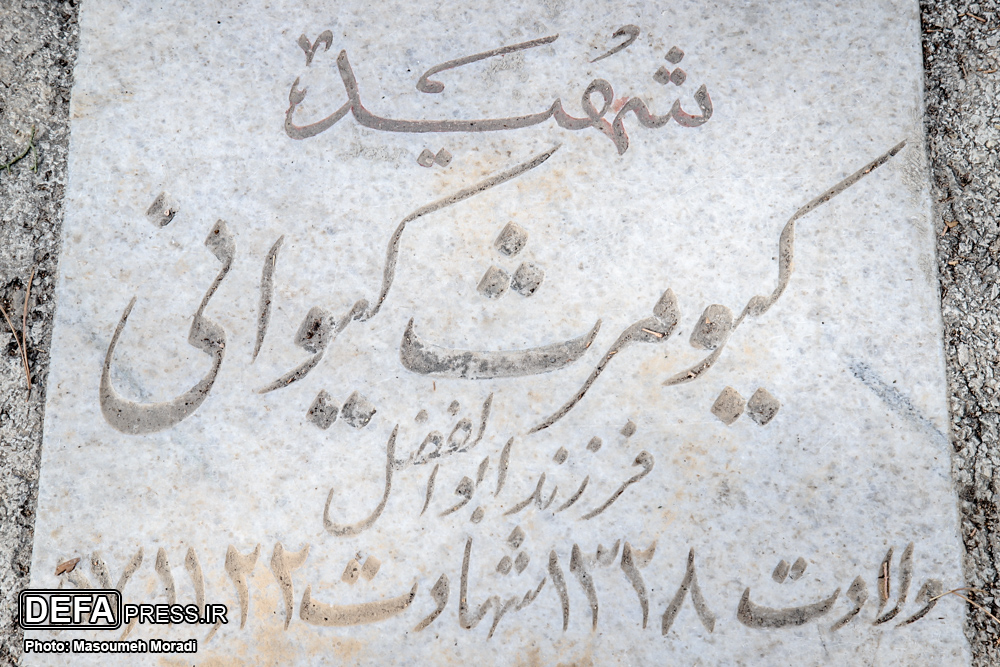 شهید
کیومرث کیوانی
فرزند ابوالفضل
ولادت ۱۳۲۸ شهادت ۲۲ ۱۱
DEFAPRESS.IR
Photo: Masoumeh Moradi